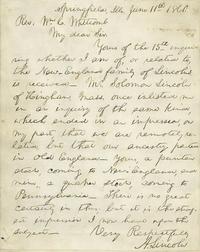 Springfield, Ills. June 11th 1860
Rev. Wm
My dear Sir
Yours of the 15th inquir-
ing whether I am of, or related to,
the New-England family of Lincolns
is received. Mr. Solomon Lincoln
of Hingham Mass. once called on
me in an inquiry of the same kind
which ended in an impression, on
my part, that we are remotely re-
lated but that our ancestry parted
in Old England. Yours, a puritan
stock, coming to New-England, and
mine, a quaker stock, coming to
Pennsylvania. There is no great
certainty in this, but it is the strong-
est impression I now have upon the
subject.
Very Respectfully
A. Lincoln